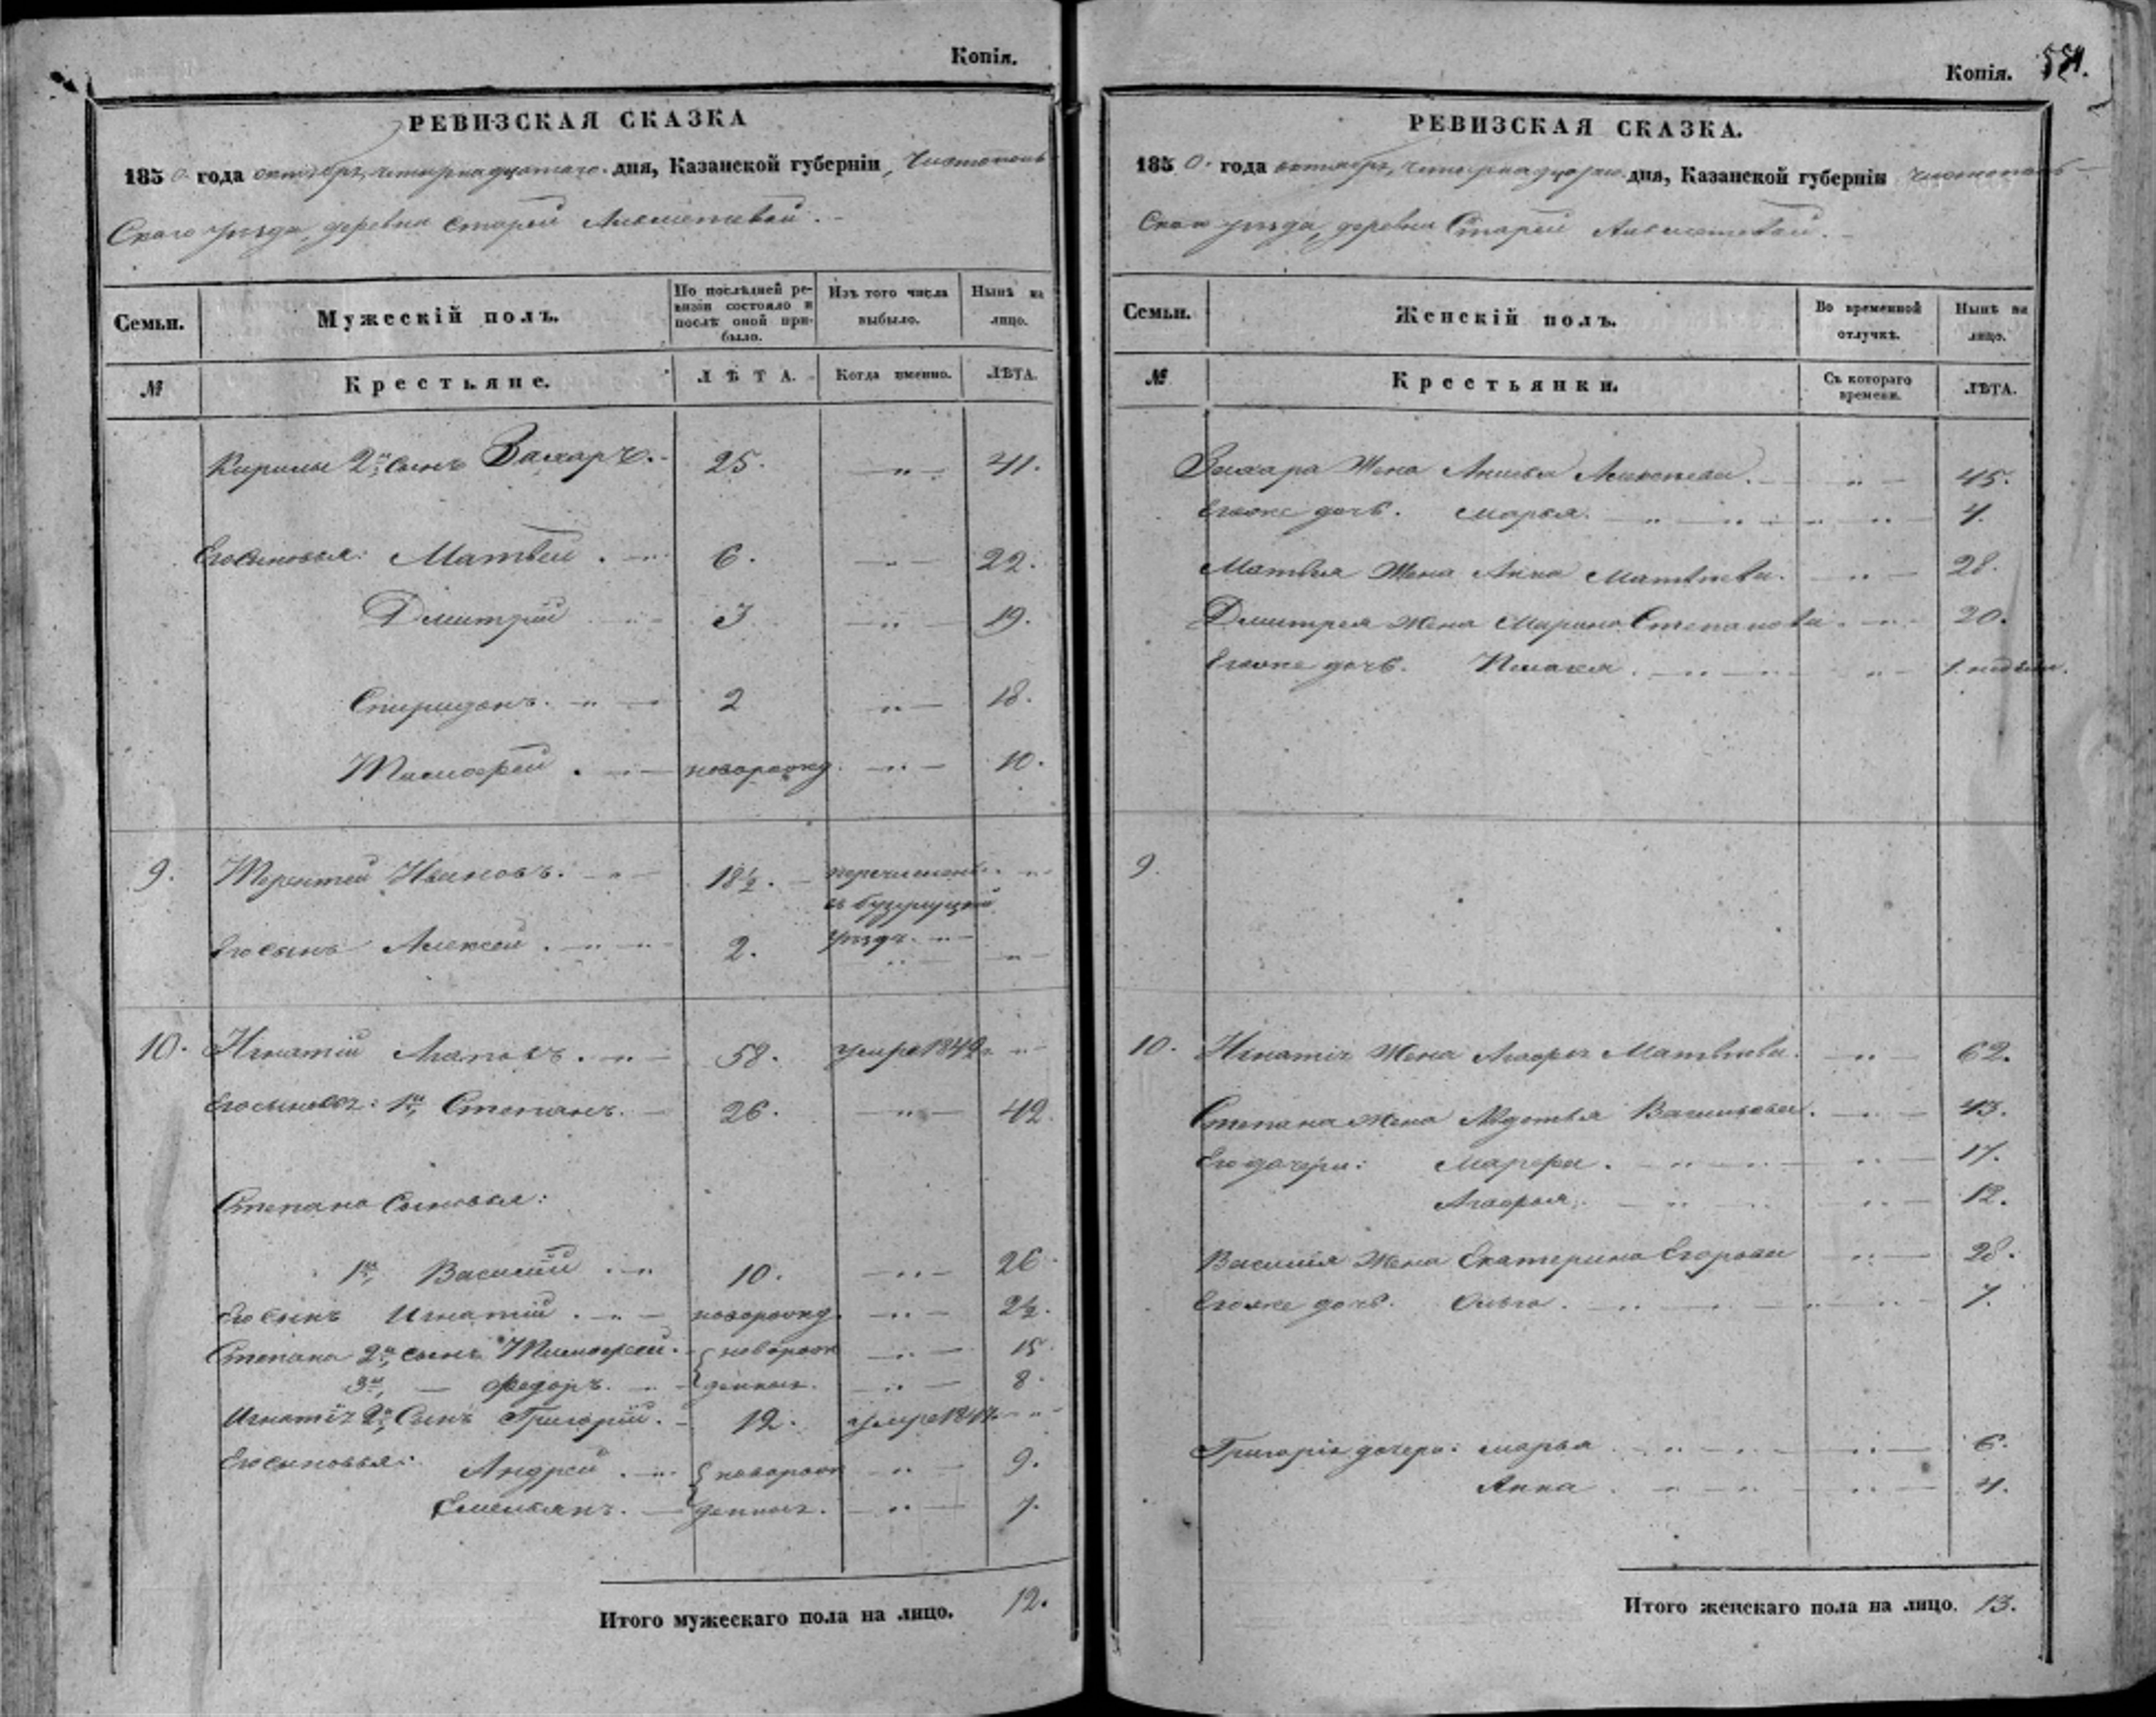 Копія.
РЕВИЗСКАЯ СКАЗКА
1850 года октября четырнадцатаго дня, Казанской губерніи, Чистополь
скаго уѣзда, деревни Старой
Семьи.
Мужескій полъ.
По послѣдней ре-
визіи состояло и
послѣ оной при-
было.
Изъ того числа
выбыло.
Нынѣ на
лицо.
№
Крестьяне.
ЛѢТА.
Когда именно.
ЛѢТА.
Кирилы 2й сынъ Захаръ. 25. — „ — 41.
Его сыновья: Матвей . — „ 6. — „ — 22.
Дмитрій — „ — 3 — „ — 19.
Спиридонъ. — „ — 2 „ — 18.
Тимофей . — „ — новорожд. — „ — 10.
9. Терентей Ивановъ. — „ — 18½. — перечисленъ. — „ —
въ Бузулуцкій
Его сынъ Алексей . — „ — „ 2. уѣздъ. — „ —
— „ —
10. Игнатій Агаповъ. — „ — 58. умре 1842. — „ —
Его сыновья: 1й Степанъ. — 26. — „ — 42.
Степана сыновья:
1й Василій . — „ 10. — „ — 26.
Его сынъ Игнатій . — „ — новорожд. — „ — 2½.
Степана 2й сынъ Тимофей. — новорож — „ — 15.
3й — Федоръ. — денныя. — „ — 8.
Игнатія 2й сынъ Григорій. — 12. умре — „
Его сыновья: Андрей . — „ новорож — „ — 9.
Емельянъ. — денныя. — „ — 7.
Итого мужескаго пола на лицо. 12.
Копія.
РЕВИЗСКАЯ СКАЗКА.
1850. года октября, четырнадцатаго дня, Казанской губерніи Чистополь-
скаго уѣзда, деревни Старой
Семьи.
Женскій полъ.
Во временной
отлучкѣ.
Нынѣ на
лицо.
№
Крестьянки.
Съ котораго
времени.
ЛѢТА.
Захара жена Анисья Алексеева. — „ — 45.
Его же дочь. Марья. — „ — „ — „ — „ — 4.
Матвея жена Анна Матвеева. — „ — 28.
Дмитрея жена Марина Степанова. — „ — 20.
Его же дочь. — „ — „ — „ — 1. недели.
9.
10. Игнатія жена Агафья Матвеева. — „ — 62.
Степана жена Авдотья Васильева. — „ — 43.
Его дочери: Марфа. — „ — „ — „ — 17.
Агафья. — „ — „ — „ — 12.
Василія жена Екатерина Егорова „ — 28.
Его же дочь. Ольга. — „ — „ — „ — „ — 7.
Григорія дочери: Марья — „ — „ — „ — 6.
Анна . — „ — „ — „ — 4.
Итого женскаго пола на лицо. 13.